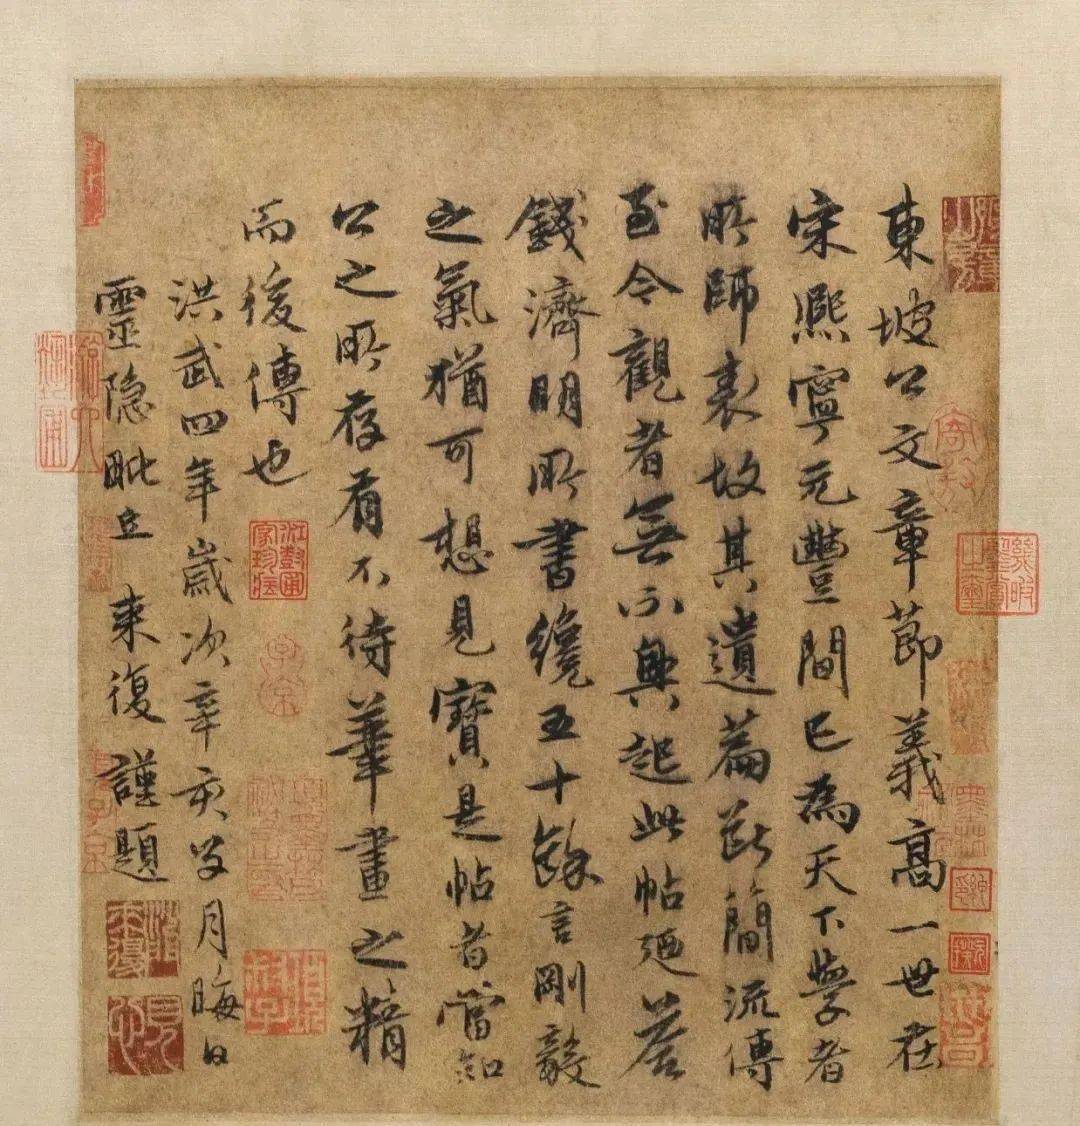 東坡公文章節義高一世在
宋熈寧元豐間已為天下學者
所師表故其遺篇斷簡流傳
至今觀者無不興起此帖廼荅
錢濟明所書纔五十餘言剛毅
之氣猶可想見寶是帖者當知
公之所存有不待筆畫之精
而後傳也
洪武四年歲次辛亥月晦日
靈隱毗丘來復謹題
子京